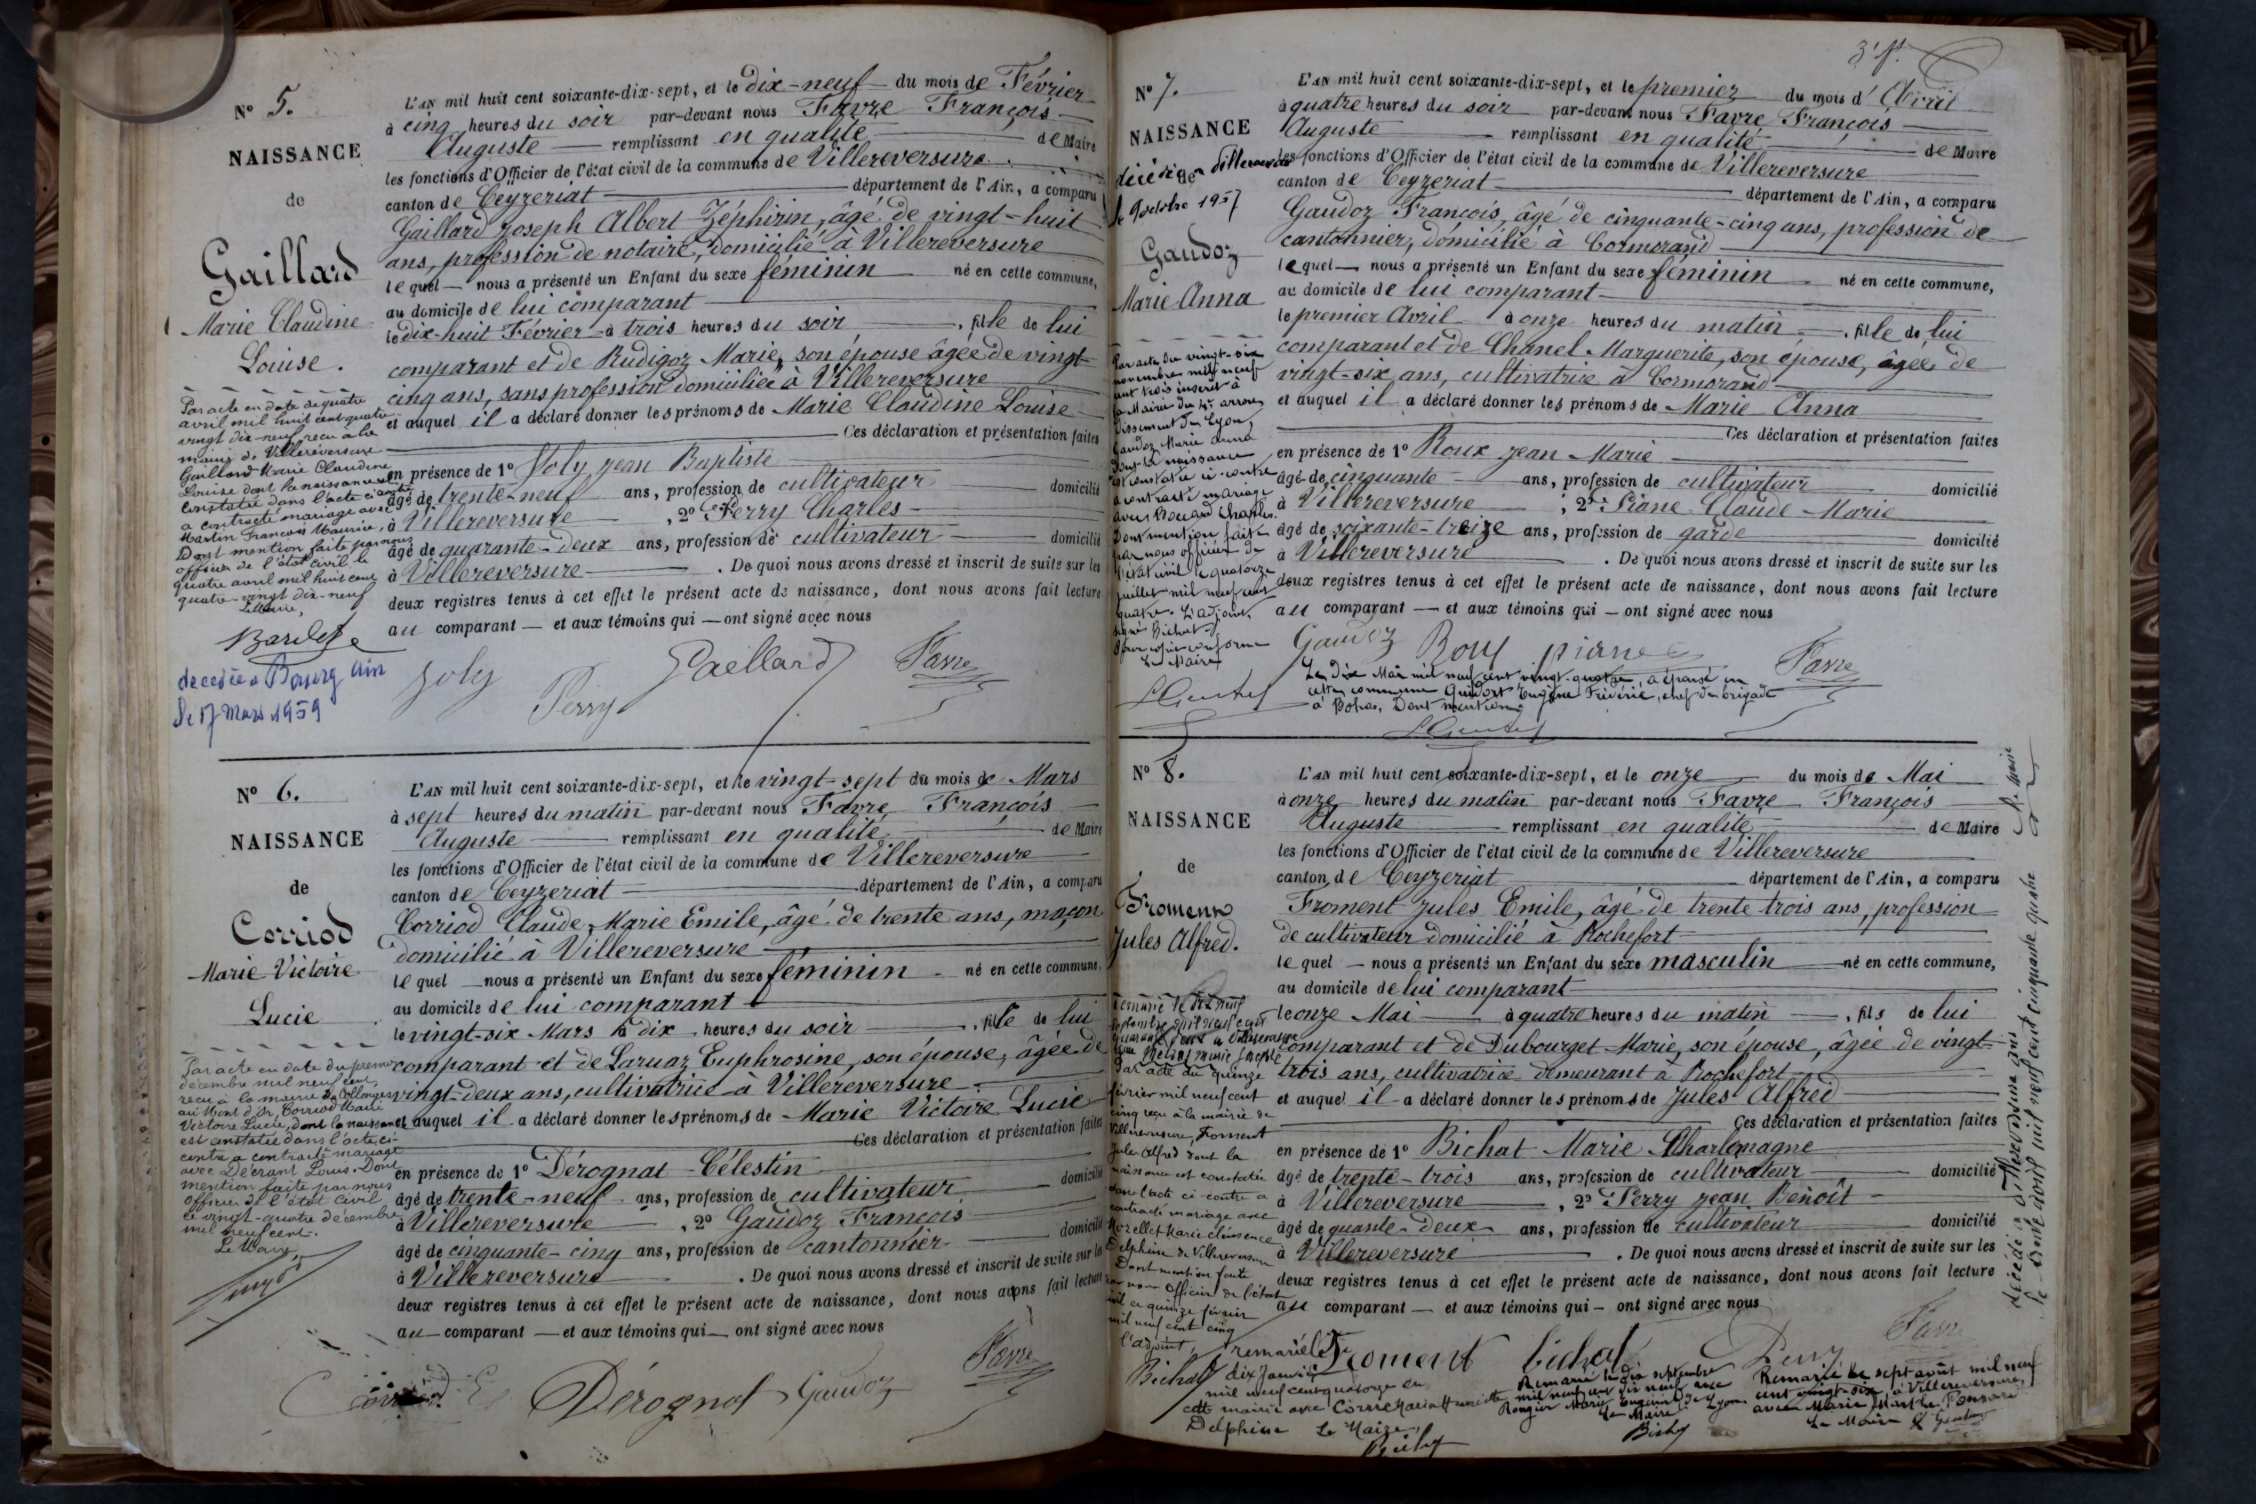 N° 5.
NAISSANCE
de
Gaillard
Marie Claudine
Louise.
Par acte en date du quatre
avril mil huit cent quatre
vingt dix-neuf reçu à la
mairie de Villereversure
Gaillard Marie Claudine
Louise dont la naissance est
constatée dans l'acte ci-contre
a contracté mariage avec
Martin François Maurice,
Dont mention faite par nous
officier de l'état civil le
quatre avril mil huit cent
quatre-vingt dix-neuf
Le Maire,
décédée à Bourg Ain
le 17 Mars 1959
L'AN mil huit cent soixante-dix-sept, et le dix-neuf du mois de Février
à cinq heures du soir par-devant nous Favre François
Auguste remplissant en qualité de Maire
les fonctions d'Officier de l'état civil de la commune de Villereversure
canton de Ceyzeriat département de l'Ain, a comparu
Gaillard Joseph Albert Zéphirin, âgé de vingt-huit
ans, profession de notaire, domicilié à Villereversure
lequel nous a présenté un Enfant du sexe féminin né en cette commune,
au domicile de lui comparant
le dix-huit Février à trois heures du soir, fille de lui
comparant et de Rudigoz Marie, son épouse âgée de vingt-
cinq ans, sans profession domiciliée à Villereversure
et auquel il a déclaré donner les prénoms de Marie Claudine Louise
Ces déclaration et présentation faites
en présence de 1° Joly Jean Baptiste
âgé de trente-neuf ans, profession de cultivateur domicilié
à Villereversure, 2° Perry Charles
âgé de quarante-deux ans, profession de cultivateur domicilié
à Villereversure. De quoi nous avons dressé et inscrit de suite sur les
deux registres tenus à cet effet le présent acte de naissance, dont nous avons fait lecture
au comparant et aux témoins qui ont signé avec nous
Joly Perry Gaillard Favre
N° 6.
NAISSANCE
de
Corriod
Marie Victoire
Lucie
Par acte en date du premier
décembre mil neuf cent,
reçu à la mairie de Collonges
au Mont d'Or, Corriod Marie
Victoire Lucie, dont la naissance
est constatée dans l'acte ci-
contre a contracté mariage
avec Décrant Louis. Dont
mention faite par nous
officier de l'état civil
ce vingt-quatre décembre
mil neuf cent.
Le Maire,
L'AN mil huit cent soixante-dix-sept, et le vingt-sept du mois de Mars
à sept heures du matin par-devant nous Favre François
Auguste remplissant en qualité de Maire
les fonctions d'Officier de l'état civil de la commune de Villereversure
canton de Ceyzeriat département de l'Ain, a comparu
Corriod Claude Marie Emile, âgé de trente ans, maçon
domicilié à Villereversure
lequel nous a présenté un Enfant du sexe féminin né en cette commune,
au domicile de lui comparant
le vingt-six Mars à dix heures du soir, fille de lui
comparant et de Laruaz Euphrosine, son épouse, âgée de
vingt-deux ans, cultivatrice à Villereversure
et auquel il a déclaré donner les prénoms de Marie Victoire Lucie
Ces déclaration et présentation faites
en présence de 1° Dérognat Célestin
âgé de trente-neuf ans, profession de cultivateur domicilié
à Villereversure, 2° Gaudoz François
âgé de cinquante-cinq ans, profession de cantonnier domicilié
à Villereversure. De quoi nous avons dressé et inscrit de suite sur les
deux registres tenus à cet effet le présent acte de naissance, dont nous avons fait lecture
au comparant et aux témoins qui ont signé avec nous
Corriod Dérognat Gaudoz Favre
N° 7.
NAISSANCE
de
décédée à Villereversure
le 9 octobre 1957
Gaudoz
Marie Anna
Par acte du vingt-six
novembre mil neuf
cent trois inscrit à
la Mairie du 4e arron
dissement de Lyon,
Gaudoz Marie Anna
dont la naissance
est constatée ci-contre
a contracté mariage
avec Charles
Dont mention faite
par nous officier de
l'état civil le quatorze
juillet mil neuf cent
quatre. L'adjoint,
signé Bichat
Pour copie conforme
Le Maire
L'AN mil huit cent soixante-dix-sept, et le premier du mois d'Avril
à quatre heures du soir par-devant nous Favre François
Auguste remplissant en qualité de Maire
les fonctions d'Officier de l'état civil de la commune de Villereversure
canton de Ceyzeriat département de l'Ain, a comparu
Gaudoz François, âgé de cinquante-cinq ans, profession de
cantonnier, domicilié à Cormorand
lequel nous a présenté un Enfant du sexe féminin né en cette commune,
au domicile de lui comparant
le premier Avril à onze heures du matin, fille de lui
comparant et de Chanel Marguerite, son épouse, âgée de
vingt-six ans, cultivatrice à Cormorand
et auquel il a déclaré donner les prénoms de Marie Anna
Ces déclaration et présentation faites
en présence de 1° Roux Jean Marie
âgé de cinquante ans, profession de cultivateur domicilié
à Villereversure, 2° Piane Claude Marie
âgé de soixante-treize ans, profession de garde domicilié
à Villereversure. De quoi nous avons dressé et inscrit de suite sur les
deux registres tenus à cet effet le présent acte de naissance, dont nous avons fait lecture
au comparant et aux témoins qui ont signé avec nous
Gaudoz Roux piane Favre
Le dix Mai mil neuf cent vingt-quatre, a épousé en
cette commune Eugène Frédéric, chef de brigade
à Bohas, Dont mention.
N° 8.
NAISSANCE
de
Froment
Jules Alfred.
Remarié le
septembre mil neuf cent
quarante à Villereversure
avec Marie
Par acte du quinze
février mil neuf cent
cinq reçu à la mairie de
Villereversure, Froment
Jules Alfred dont la
naissance est constatée
dans l'acte ci-contre a
contracté mariage avec
Morellet Marie Clémence
Delphine de Villereversure
Dont mention faite
par nous Officier de l'état
civil ce quinze février
mil neuf cent cinq
l'adjoint,
Bichat
L'AN mil huit cent soixante-dix-sept, et le onze du mois de Mai
à onze heures du matin par-devant nous Favre François
Auguste remplissant en qualité de Maire
les fonctions d'Officier de l'état civil de la commune de Villereversure
canton de Ceyzeriat département de l'Ain, a comparu
Froment Jules Emile, âgé de trente trois ans, profession
de cultivateur domicilié à Rochefort
lequel nous a présenté un Enfant du sexe masculin né en cette commune,
au domicile de lui comparant
le onze Mai à quatre heures du matin, fils de lui
comparant et de Dubourget Marie, son épouse, âgée de vingt-
trois ans, cultivatrice demeurant à Rochefort
et auquel il a déclaré donner les prénoms de Jules Alfred
Ces déclaration et présentation faites
en présence de 1° Bichat Marie Charlemagne
âgé de trente-trois ans, profession de cultivateur domicilié
à Villereversure, 2° Perry Jean Benoît
âgé de quante-deux ans, profession de cultivateur domicilié
à Villereversure. De quoi nous avons dressé et inscrit de suite sur les
deux registres tenus à cet effet le présent acte de naissance, dont nous avons fait lecture
au comparant et aux témoins qui ont signé avec nous
Froment Bichat Perry Favre
remarié le
dix Janvier
mil neuf cent quatorze en
cette mairie avec
Delphine Le Maire,
Remarié le dix septembre
mil neuf cent dix neuf avec
Rongier Marie de Lyon
Le Maire
Bichat
Remarié le sept août mil neuf
cent vingt-six, à Villereversure,
avec Marie Marthe Ponsard
Le Maire
décédé à Villereversure
le trente août mil neuf cent cinquante quatre